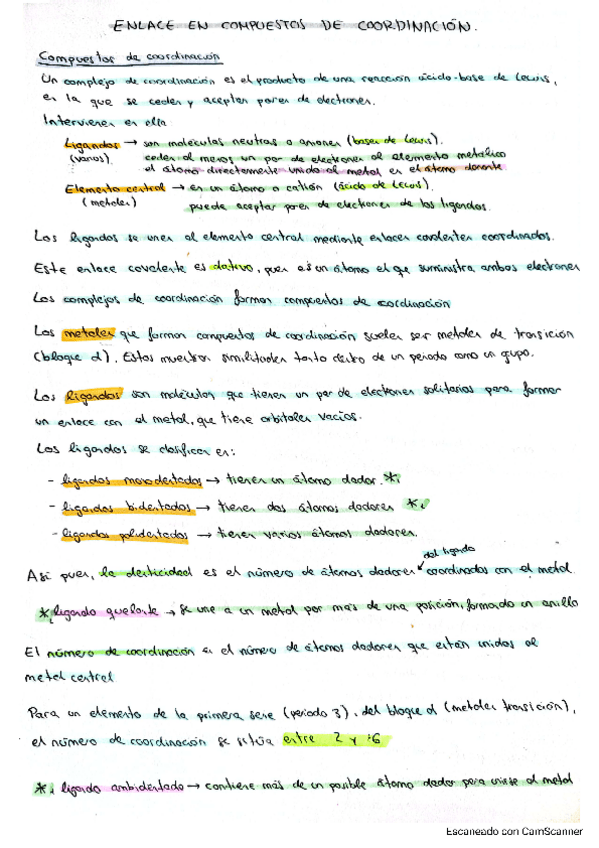 ENLACE EN COMPUESTOS DE COORDINACIÓN.
Compuestos de coordinación
Un complejo de coordinación es el producto de una reacción ácido-base de Lewis,
en la que se ceden y aceptan pares de electrones.
Intervienen en ella:
Ligandos → son moléculas neutras o aniones (bases de Lewis).
(varios). ceden al menos un par de electrones al elemento metálico
el átomo directamente unido al metal es el átomo donante
Elemento central → es un átomo o catión (ácido de Lewis).
(metales) puede aceptar pares de electrones de los ligandos.
Los ligandos se unen al elemento central mediante enlaces covalentes coordinados.
Este enlace covalente es dativo, pues es un átomo el que suministra ambos electrones
Los complejos de coordinación forman compuestos de coordinación
Los metales que forman compuestos de coordinación suelen ser metales de transición
(bloque d). Estos muestran similitudes tanto dentro de un periodo como un grupo.
Los ligandos son moléculas que tienen un par de electrones solitarios para formar
un enlace con el metal, que tiene orbitales vacíos.
Los ligandos se clasifican en:
- ligandos monodentados → tienen un átomo dador. *1
- ligandos bidentados → tienen dos átomos dadores *2
- ligandos polidentados → tienen varios átomos dadores.
del ligando
Así pues, la denticidad es el número de átomos dadores coordinados con el metal
*2 ligando quelante → se une a un metal por más de una posición, formando un anillo
El número de coordinación es el número de átomos dadores que están unidos al
metal central
Para un elemento de la primera serie (periodo 3), del bloque d (metales transición),
el número de coordinación se sitúa entre 2 y 6
*1 ligando ambidentado → contiene más de un posible átomo dador para unirse al metal
Escaneado con CamScanner